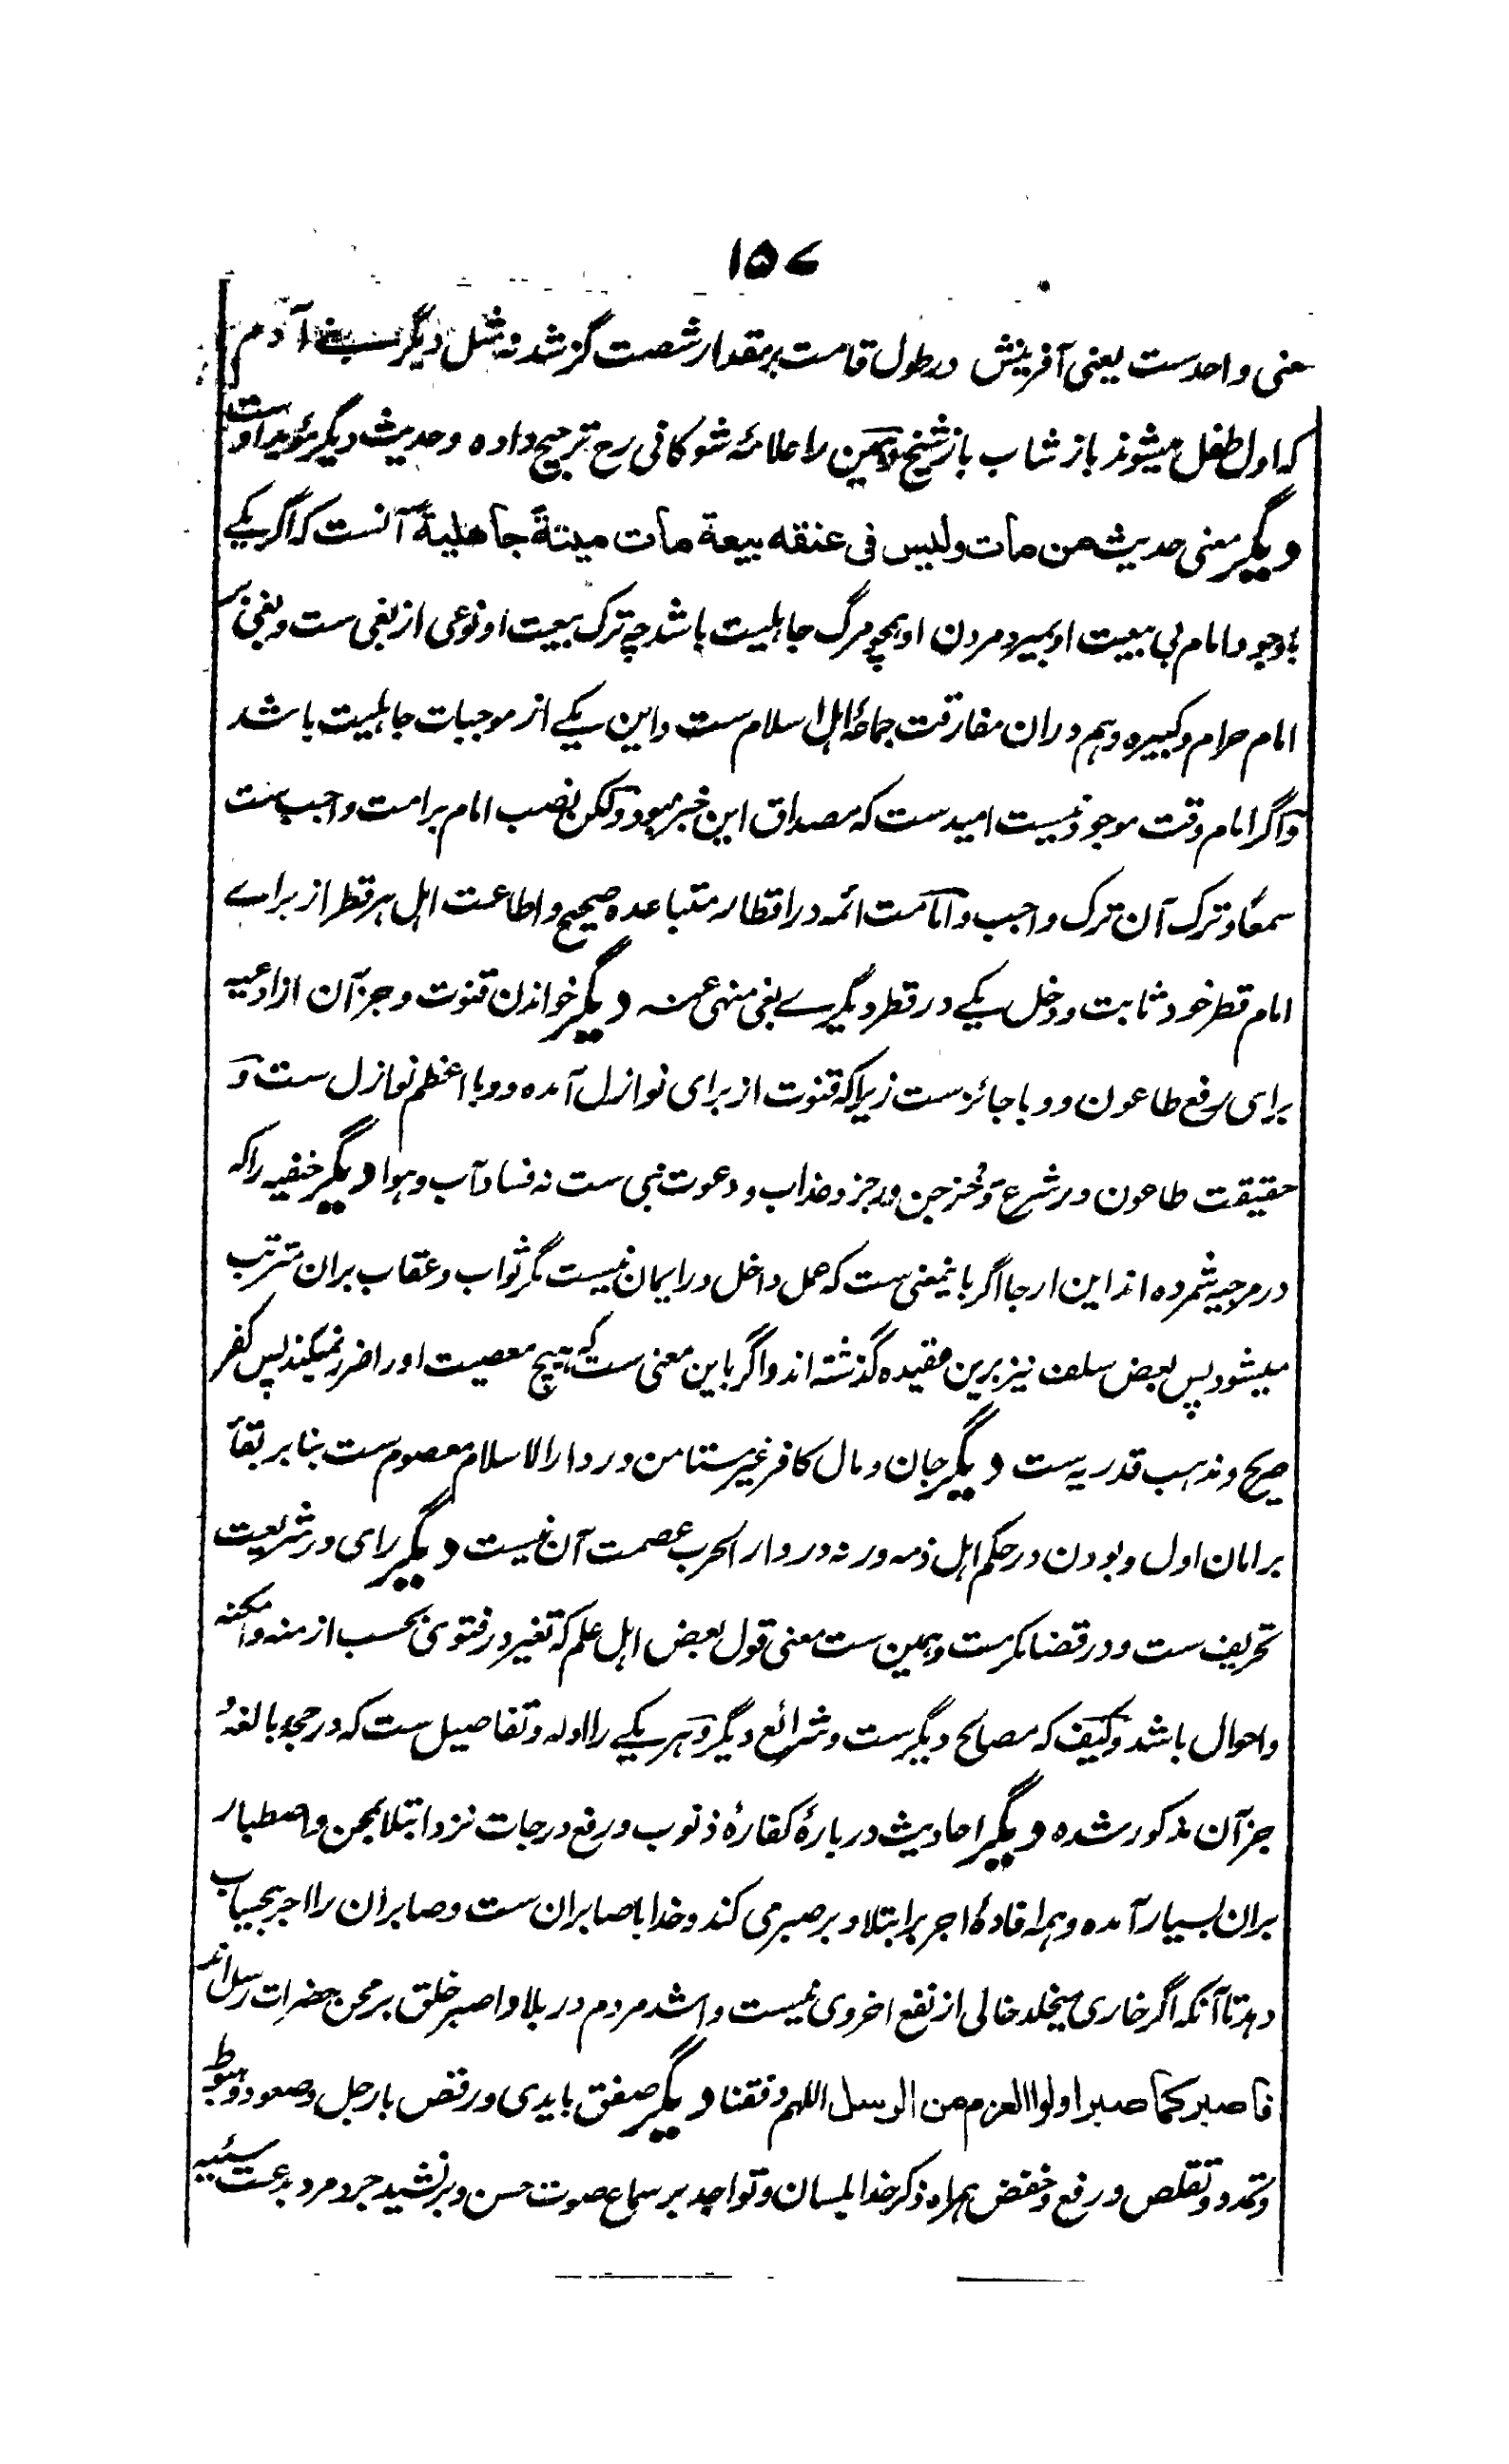 ۱۵۷
معنی واحدست یعنی آفرینش در طول قامت بر مقدار شصت گز شد نه مثل دیگر بنی آدم
که اول طفل میشوند باز شاب باز شیخ وهمین را علامۀ شوکانی رح ترجیح داده و حدیث دیگر مؤید اوست
دیگر معنی حدیث من مات ولیس فی عنقه بیعة مات میتةً جاهلیةً آنست که اگر یکے
باوجود امام بی بیعت او بمیرد مردن او همچو مرگ جاهلیت باشد چه ترک بیعت او نوعی از بغی ست و بغی بر
امام حرام و کبیره وهم دران مفارقت جماعۀ اهل اسلام ست و این یکے از موجبات جاهلیت باشد
و اگر امام وقت موجود نیست امیدست که مصداق این خبر نبود ولکن نصب امام بر امت واجب ست
سمعًا و ترک آن ترک واجب و امامت ائمه در اقطار متباعده صحیح و اطاعت اهل هر قطر از برای
امام قطر خود ثابت و دخل یکے در قطر دیگرے بغی منهی عنه دیگر خواندن قنوت و جز آن از ادعیه
برای رفع طاعون و وبا جائز ست زیرا که قنوت از برای نوازل آمده و وبا اعظم نوازل ست و
حقیقت طاعون در شرع وخز جن و رجز و عذاب و دعوت نبی ست نه فساد آب و هوا دیگر حنفیه را که
در مرجیه شمرده اند این ارجا اگر باینمعنی ست که عمل داخل در ایمان نیست مگر ثواب و عقاب بران مترتب
میشود پس بعض سلف نیز برین عقیده گذشته اند و اگر باین معنی ست که هیچ معصیت او را ضرر نمیکند پس کفر
صریح و مذهب قدریه ست دیگر جان و مال کافر غیر مستامن در دارالاسلام معصوم ست بنا بر بقا
بر امان اول و بودن در حکم اهل ذمه ورنه در دار الحرب عصمت آن نیست دیگر رای در شریعت
تحریف ست و در قضا مکرمت وهمین ست معنی قول بعض اهل علم که تغیر در فتوی بحسب ازمنه و امکنه
و احوال باشد و کیف که مصالح دیگرست و شرائع دیگر و هر یکے را ادله و تفاصیل ست که در حجة بالغه و
جز آن مذکور شده دیگر احادیث در بارۀ کفارۀ ذنوب و رفع درجات نزد ابتلا بمحن و اصطبار
بران بسیار آمده وهمه افادۀ اجر بر ابتلا و بر صبر می کند و خدا با صابران ست و صابران را اجر بیحساب
دهد تا آنکه اگر خاری میخلد خالی از نفع اخروی نیست و اشد مردم در بلا و اصبر خلق بر محن حضرات رسل اند
فاصبر کما صبر اولوا العزم من الرسل اللهم وفقنا دیگر صفق بایدی و رقص بارجل و صعود و هبوط
و تمدد و تقلص و رفع و خفض همراه ذکر خدا بلسان و تواجد بر سماع صوت حسن و بر نشید جرد مرد بدعت سیئه